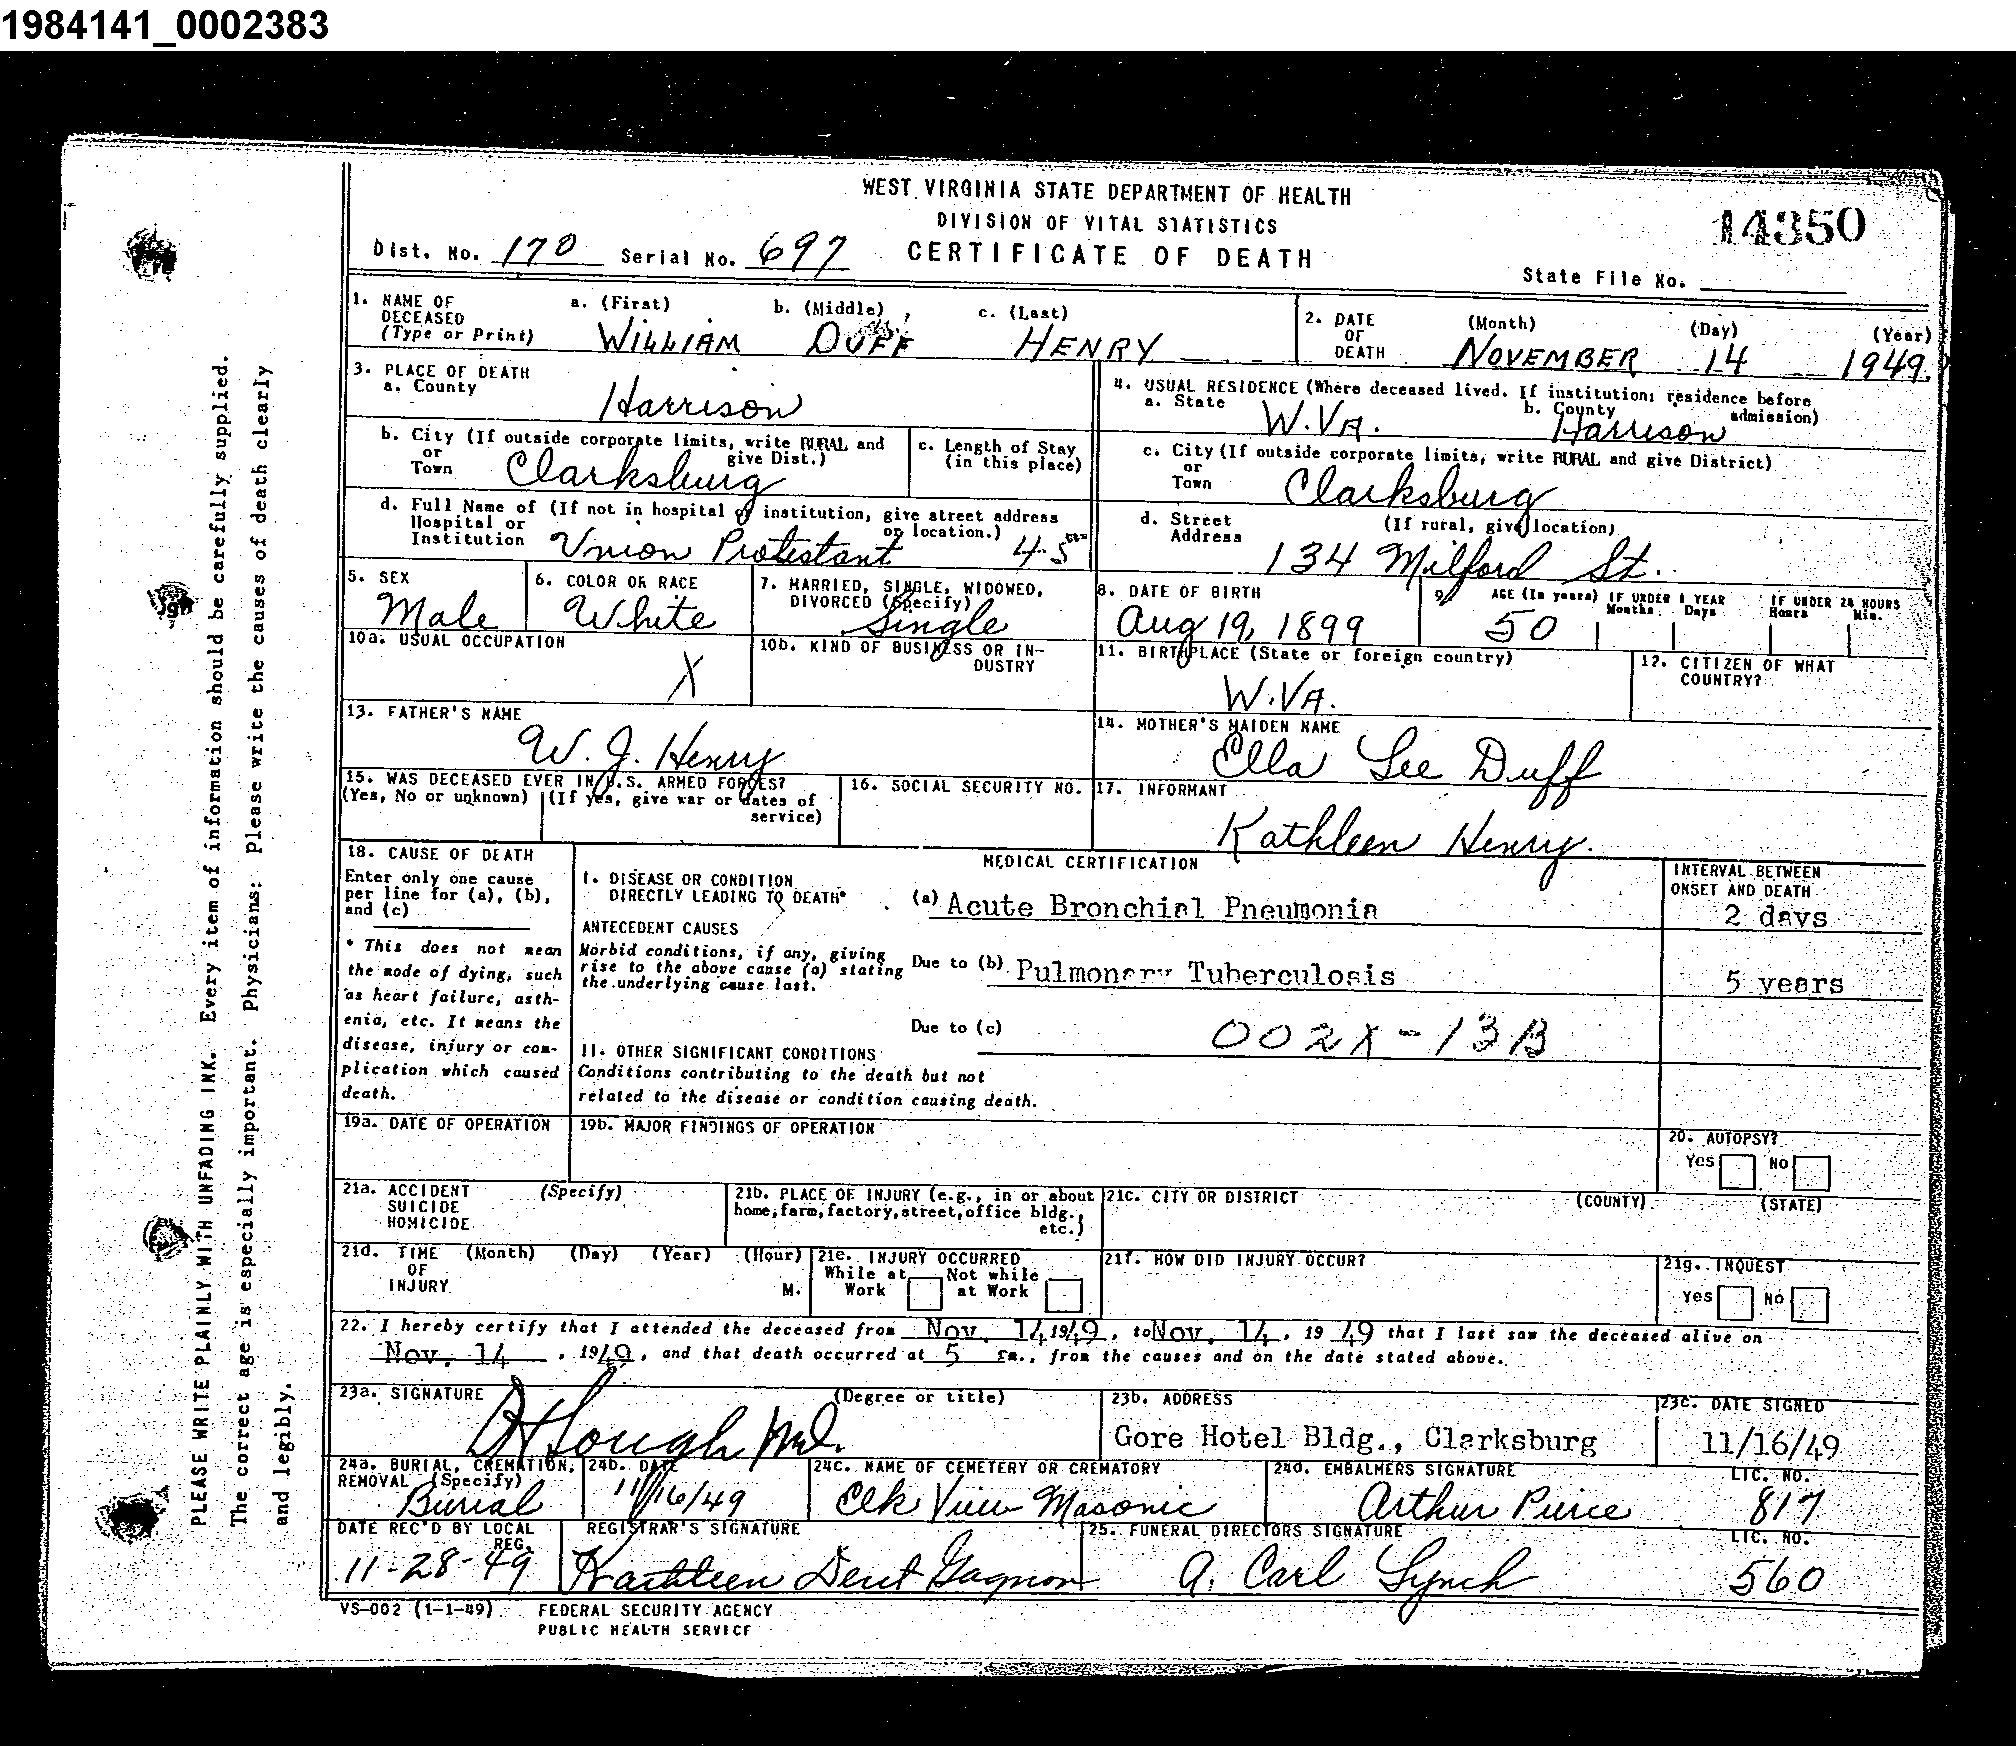 1984141_0002383
WEST VIRGINIA STATE DEPARTMENT OF HEALTH
DIVISION OF VITAL STATISTICS
14350
Dist. No. 170 Serial No. 697 CERTIFICATE OF DEATH
State File No.
1. NAME OF DECEASED (Type or Print) a. (First) b. (Middle) c. (Last)
WILLIAM DUFF HENRY
2. DATE OF DEATH (Month) (Day) (Year)
NOVEMBER 14 1949
3. PLACE OF DEATH
a. County Harrison
4. USUAL RESIDENCE (Where deceased lived. If institution: residence before admission)
a. State W.VA. b. County Harrison
b. City (If outside corporate limits, write RURAL and give Dist.)
or Town Clarksburg
c. Length of Stay (in this place)
c. City (If outside corporate limits, write RURAL and give District)
or Town Clarksburg
d. Full Name of (If not in hospital or institution, give street address or location.)
Hospital or Institution Union Protestant 45
d. Street Address (If rural, give location)
134 Milford St.
5. SEX Male
6. COLOR OR RACE White
7. MARRIED, SINGLE, WIDOWED, DIVORCED (Specify) Single
8. DATE OF BIRTH Aug 19, 1899
9. AGE (In years) 50 IF UNDER 1 YEAR Months Days IF UNDER 24 HOURS Hours Min.
10a. USUAL OCCUPATION X
10b. KIND OF BUSINESS OR INDUSTRY
11. BIRTHPLACE (State or foreign country) W.VA.
12. CITIZEN OF WHAT COUNTRY?
13. FATHER'S NAME W. J. Henry
14. MOTHER'S MAIDEN NAME Ella Lee Duff
15. WAS DECEASED EVER IN U.S. ARMED FORCES?
(Yes, No or unknown) (If yes, give war or dates of service)
16. SOCIAL SECURITY NO.
17. INFORMANT Kathleen Henry.
18. CAUSE OF DEATH
Enter only one cause per line for (a), (b), and (c)
* This does not mean the mode of dying, such as heart failure, asthenia, etc. It means the disease, injury or complication which caused death.
MEDICAL CERTIFICATION
INTERVAL BETWEEN ONSET AND DEATH
I. DISEASE OR CONDITION DIRECTLY LEADING TO DEATH* (a) Acute Bronchial Pneumonia 2 days
ANTECEDENT CAUSES
Morbid conditions, if any, giving rise to the above cause (a) stating the underlying cause last.
Due to (b) Pulmonary Tuberculosis 5 years
Due to (c) 002X-13B
II. OTHER SIGNIFICANT CONDITIONS
Conditions contributing to the death but not related to the disease or condition causing death.
19a. DATE OF OPERATION
19b. MAJOR FINDINGS OF OPERATION
20. AUTOPSY?
Yes No
21a. ACCIDENT SUICIDE HOMICIDE (Specify)
21b. PLACE OF INJURY (e.g., in or about home, farm, factory, street, office bldg., etc.)
21c. CITY OR DISTRICT (COUNTY) (STATE)
21d. TIME OF INJURY (Month) (Day) (Year) (Hour) M.
21e. INJURY OCCURRED
While at Work Not while at Work
21f. HOW DID INJURY OCCUR?
21g. INQUEST
Yes No
22. I hereby certify that I attended the deceased from Nov. 14 1949, to Nov. 14, 1949 that I last saw the deceased alive on
Nov. 14, 1949, and that death occurred at 5 m., from the causes and on the date stated above.
23a. SIGNATURE (Degree or title)
23b. ADDRESS
Gore Hotel Bldg., Clarksburg
23c. DATE SIGNED
11/16/49
24a. BURIAL, CREMATION, REMOVAL (Specify) Burial
24b. DATE 11/16/49
24c. NAME OF CEMETERY OR CREMATORY Elk View Masonic
24d. EMBALMERS SIGNATURE Arthur Pierce
LIC. NO. 817
DATE REC'D BY LOCAL REG. 11-28-49
REGISTRAR'S SIGNATURE Kathleen Dent Gagnon
25. FUNERAL DIRECTORS SIGNATURE A. Carl Lynch
LIC. NO. 560
VS-002 (1-1-49) FEDERAL SECURITY AGENCY
PUBLIC HEALTH SERVICE
PLEASE WRITE PLAINLY WITH UNFADING INK. Every item of information should be carefully supplied.
The correct age is especially important. Physicians: please write the causes of death clearly
and legibly.